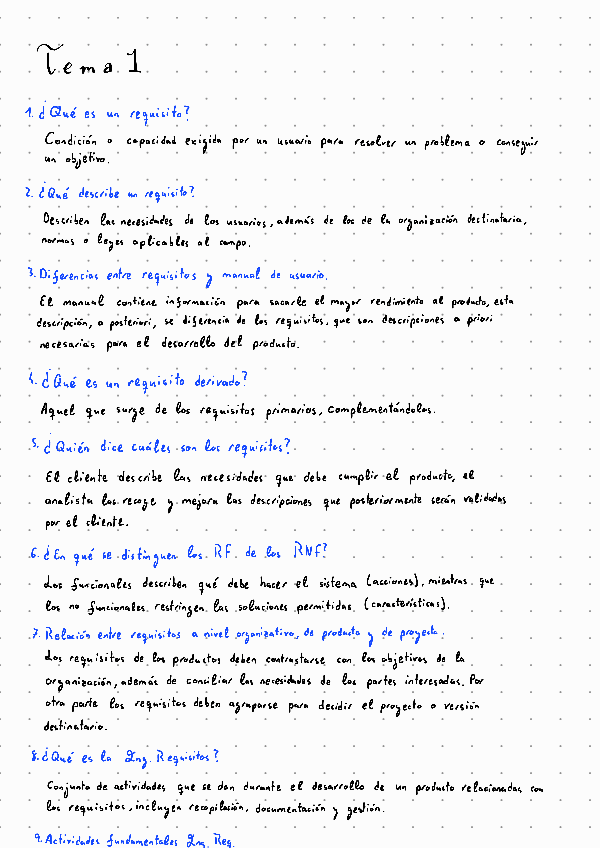 Tema 1
1. ¿Qué es un requisito?
Condición o capacidad exigida por un usuario para resolver un problema o conseguir
un objetivo.
2. ¿Qué describe un requisito?
Describen las necesidades de los usuarios, además de los de la organización destinataria,
normas o leyes aplicables al campo.
3. Diferencias entre requisitos y manual de usuario.
El manual contiene información para sacarle el mayor rendimiento al producto, esta
descripción, a posteriori, se diferencia de los requisitos, que son descripciones a priori
necesarias para el desarrollo del producto.
4. ¿Qué es un requisito derivado?
Aquel que surge de los requisitos primarios, complementándolos.
5. ¿Quién dice cuáles son los requisitos?
El cliente describe las necesidades que debe cumplir el producto, el
analista las recoge y mejora las descripciones que posteriormente serán validadas
por el cliente.
6. ¿En qué se distinguen los RF de los RNF?
Los funcionales describen qué debe hacer el sistema (acciones), mientras que
los no funcionales restringen las soluciones permitidas (características).
7. Relación entre requisitos a nivel organizativo, de producto y de proyecto.
Los requisitos de los productos deben contrastarse con los objetivos de la
organización, además de conciliar las necesidades de las partes interesadas. Por
otra parte los requisitos deben agruparse para decidir el proyecto o versión
destinatario.
8. ¿Qué es la Ing. Requisitos?
Conjunto de actividades que se dan durante el desarrollo de un producto relacionadas con
los requisitos, incluyen recopilación, documentación y gestión.
9. Actividades fundamentales Ing. Req.